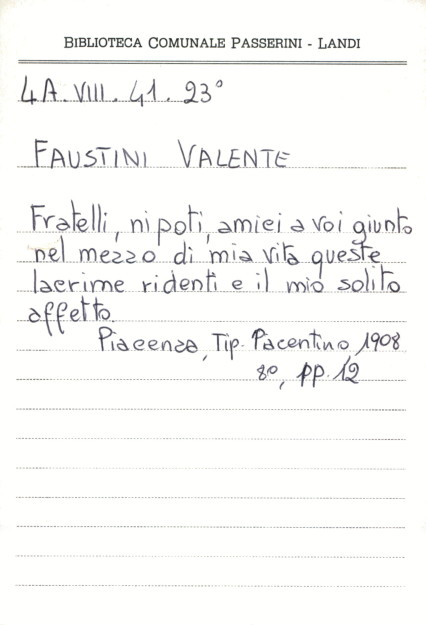 BIBLIOTECA COMUNALE PASSERINI - LANDI
4A.VIII.41.23°
FAUSTINI VALENTE
Fratelli, nipoti, amici a voi giunto
nel mezzo di mia vita queste
lacrime ridenti e il mio solito
affetto.
Piacenza, Tip. Piacentino, 1908
8º, pp. 12